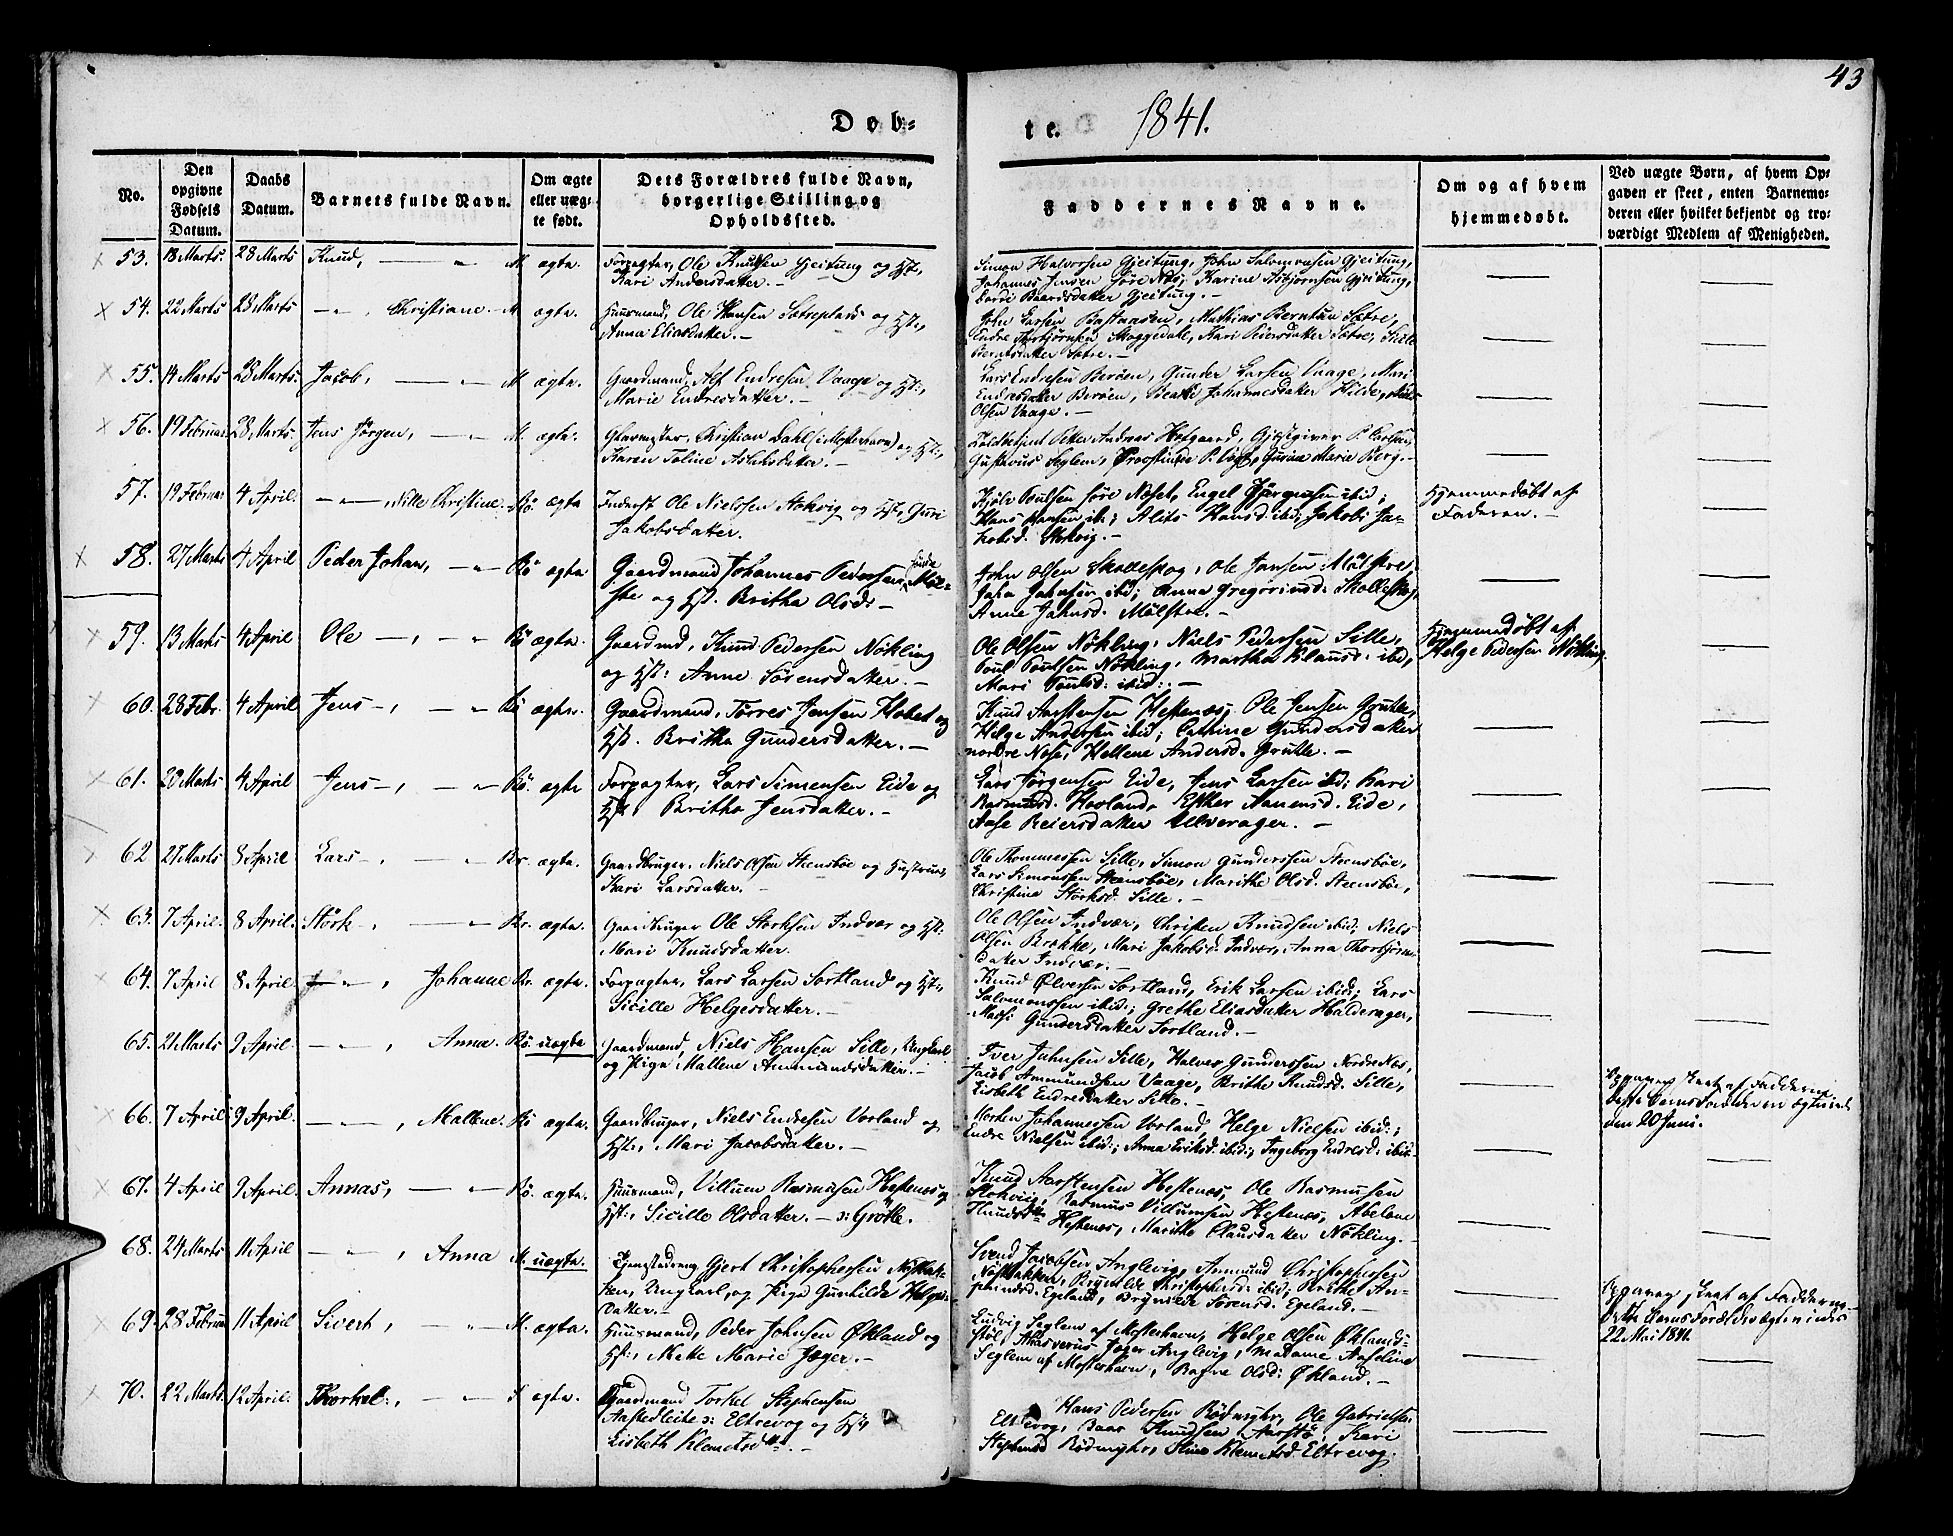 43
Døb-
te.
1841.
No.
Den opgivne Fødsels Datum.
Daabs Datum.
Barnets fulde Navn.
Om ægte eller uæg-te født.
Dets Forældres fulde Navn, borgerlige Stilling og Opholdssted.
Faddernes Navne.
Om og af hvem hjemmedøbt.
Ved uægte Børn, af hvem Op-
gaven er skeet, enten Barnemo-
deren eller hvilket bekjendt og tro-
værdigt Medlem af Menigheden.
53. 18 Marts 28 Marts Knud, — " — M. ægte. Forpagter, Ole Knudsen Gjeitung og Hst.,
Kari Andersdatter. —
Simon Halvorsen Gjeitung, John Salomonsen Gjeitung,
Johannes Jensen søre Næs, Karine Asbjørnsen Gjeitung,
Baardsdatter Gjeitung. —
54. 22 Marts 28 Marts — " —, Christiane. — M. ægte. Huusmand, Ole Hansen Sætreplads og Hst.,
Anna Eliasdatter. —
John Larsen Mathias Berntsen Sætre,
Endre Thorbjørnsen Skoggedale, Kari Pedersdatter Sætre,
Berntsdatter Sætre. —
55. 14 Marts 28 Marts. Jacob, — " — M. ægte. Gaardmand, Alf Endresen Vaage og Hst.,
Marie Endresdatter. —
Lars Endresen Berøen, Gunder Larsen Vaage, Mari
Endresdatter Berøen, Beathe Johannesdatter Hilde,
Olsen Vaage. —
56. 19 Februar 28 Marts. Jens Jørgen, — " — M. ægte. Glarmester, Christian Dahl (i Mosterhavn) og Hst.,
Karen Toline Aslaksdatter. —
Petter Andreas Hofgaard, Gjestgiver P. Carlsen,
Gustavus Seglem, P. Vogt, Marie Berg. —
57. 19 Februar 4 April. — " —, Nille Christine. Bø. ægte Inderst Ole Nielssen Stokvig og Hst. Guri
Jakobsdatter.
Poulsen søre Næset, Engel Jørgensen ibid;
Hans Hansen ib.; Alits Hansd. ibid; Jakobi Ja-
kobsd. Stokvig. —
Hjemmedøbt af
Faderen. —
58. 27 Marts 4 April Peder Johan, — " Bø ægte Gaardmand Johannes Pedersen Møl-
ste og Hst. Britha Olsdr —
John Olsen Skolleskog, Ole Jansen Mølstre,
Jahn Jahnsen ibid; Anna Gregoriusd. Skolleskog
Anne Jahnsd. Mølstre. —
59. 13 Marts 4 April Ole — , — " Bø ægte. Gaardmd, Knud Pedersen Nøkling
og Hst: Anne Sørensdatter. —
Ole Olsen Nøkling, Niels Pedersen Sille,
Poul Poulsen Nøkling, Martha Klausd: ibid,
Mari Poulsd: ibid: . —
Hjemmedøbt af
Helge Pedersen Nøkling.
60. 28 Febr. 4 April Jens — , — " Bø ægte. Gaardmand, Tørres Jensen og
Hst. Britha Gundersdatter. —
Knud Aarstensen Hestenæs, Ole Jensen Grutle,
Helge Andersen ibid; Cathrine Gundersdatter
nordre Næse, Hellene Andersd. Grutle. —
61. 20 Marts 4 April Jens — , — " Bø. ægte Forpagter, Lars Simensen Eide og
Hst. Britha Jensdatter. —
Lars Jørgensen Eide, Jens Larsen ibid; Kari
Rasmusd. Hovland, Esther Aamensd. Eide,
Aase Reiersdatter Ulverager. —
62 27 Marts 8 April. Lars — , — " Br. ægte. Gaardbruger. Niels Olsen Steensbøe og Hustrue,
Kari Larsdatter. —
Ole Thommessen Sille, Simon Gunderssen Steensbøe,
Lars Simonssen Steensbøe, Marithe Olsd. Steensbøe,
Christine Størksd. Sille. —
63. 7 April. 8 April. Størk — , — " Br. ægte. Gaardbruger Ole Størksen Indvær og Hst:
Mari Knudsdatter.
Ole Olsen Indvær, Christen Knudsen ibid; Niels
Olsen Brekke, Mari Jakobsd. Indvær, Anna Thorbjørns
datter Indvær. —
64. 7 April 8 April. — " —, Johanne Br. ægte. Forpagter, Lars Larsen Sortland og Hst.,
Sicille Helgesdatter. —
Knud Ølversen Sortland, Erik Larsen ibid; Lars
Salomonssen ibid; Grethe Eliasdatter Halderager,
Gundersdatter Sortland. —
65. 21 Marts 9 April. — " —, Anna. Bø. uægte Gaardmand, Niels Hansen Sille, Ungkarl
og Pige Mallene Ammundsdatter. —
Iver Jahnsen Sille, Halver Gunderssen Nordre Næs,
Jacob Ammundsen Vaage, Brithe Knudsd. Sille,
Lisbeth Endresdatter Sille. —
Opgaven skeet af Fadderne
den 20 Juni.
66. 7 April 9 April. — " —, Mallene. Bø ægte. Gaardbruger, Niels Endresen Vorland og
Hst., Mari Jacobsdatter. —
Morten Johannessen Vorland, Helge Nielsen ibid.;
Endre Nielsen ibid.; Anna Eriksd. ibid; Ingeborg Endresd. ibid.
67. 4 April 9 April. Annas, — " Bø. ægte. Huusmand, Villum Rasmusen Hestenæs og
Hst., Sicille Olsdatter. — ɔ: Grötle.
Knud Aarstensen Hestenæs, Ole Rasmusen
Stokvig, Rasmus Villumsen Hestenæs, Abelone
Knudsdtr Hestenæs, Marithe Clausdatter Nøkling. —
68. 24 Marts 11 April — " —, Anna M. uægte. Tjenestedreng Gjert Christophersen Nøstbak-
ken, Ungkarl, og Pige Gunhilde Helges-
datter. —
Svend Jacobsen Anglevig, Ammund Christophersen
Nøstbakken, Brynilde Christophersd. ibid; Brithe An-
Egeland, Brynilde Sørensd. Egeland. —
Opgaven skeet af Fadderne.
22. Mai 1841.
69. 28 Februar 11 April Sivert, — " M. ægte. Huusmand, Peder Johnsen Økland og
Hst., Mette Marie Jæger. —
Ludvig Seglem af Mosterhavn, Helge Olsen Øklands-
støl, Ahasverus Jæger Anglevig, Madame Aaseline
Seglem af Mosterhavn, Olsd: Økland. —
70. 22 Marts. 12 April. Thorkel., — " ægte. Gaardmand Torkel Stephensen
Aastedleite ɔ: Eltrevog og Hst.
Lisbeth Klemetsdtr. —
Hans Pedersen Ole Gabrielsen
Eltrevog, Baar Knudsen Aarstø, Kari
Stephensd Stine Klemetsd. Eltrevog.